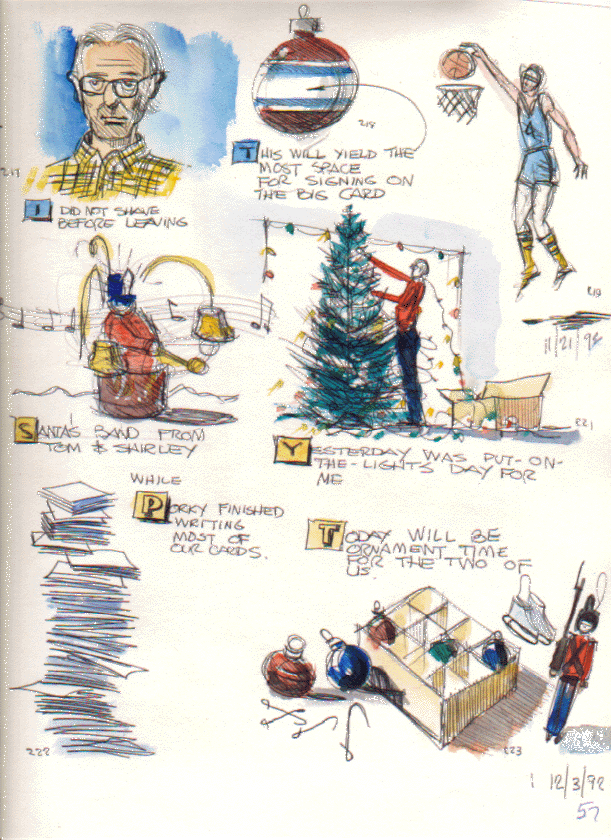 217
I DID NOT SHAVE
BEFORE LEAVING
218
THIS WILL YIELD THE
MOST SPACE
FOR SIGNING ON
THE BIG CARD
4
219
11/21/92
SANTA'S BAND FROM
TOM & SHIRLEY
YESTERDAY WAS PUT-ON-
THE-LIGHTS DAY FOR
ME
221
WHILE
PORKY FINISHED
WRITING
MOST OF
OUR CARDS.
222
TODAY WILL BE
ORNAMENT TIME
FOR THE TWO OF
US.
223
12/3/92
57